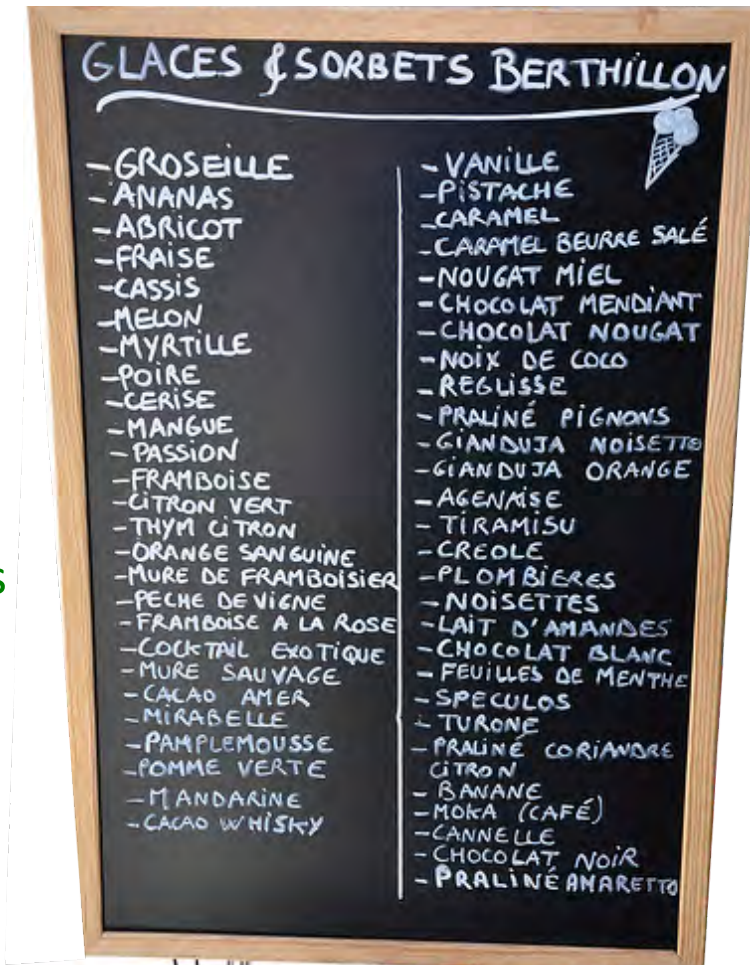 GLACES & SORBETS BERTHILLON
- GROSEILLE
- ANANAS
- ABRICOT
- FRAISE
- CASSIS
- MELON
- MYRTILLE
- POIRE
- CERISE
- MANGUE
- PASSION
- FRAMBOISE
- CITRON VERT
- THYM CITRON
- ORANGE SANGUINE
- MURE DE FRAMBOISIER
- PECHE DE VIGNE
- FRAMBOISE A LA ROSE
- COCKTAIL EXOTIQUE
- MURE SAUVAGE
- CACAO AMER
- MIRABELLE
- PAMPLEMOUSSE
- POMME VERTE
- MANDARINE
- CACAO WHISKY
- VANILLE
- PISTACHE
- CARAMEL
- CARAMEL BEURRE SALÉ
- NOUGAT MIEL
- CHOCOLAT MENDIANT
- CHOCOLAT NOUGAT
- NOIX DE COCO
- REGLISSE
- PRALINÉ PIGNONS
- GIANDUJA NOISETTO
- GIANDUJA ORANGE
- AGENAISE
- TIRAMISU
- CREOLE
- PLOMBIERES
- NOISETTES
- LAIT D'AMANDES
- CHOCOLAT BLANC
- FEUILLES DE MENTHE
- SPECULOS
- TURONE
- PRALINÉ CORIANDRE
CITRON
- BANANE
- MOKA (CAFÉ)
- CANNELLE
- CHOCOLAT NOIR
- PRALINÉ AMARETTO
S